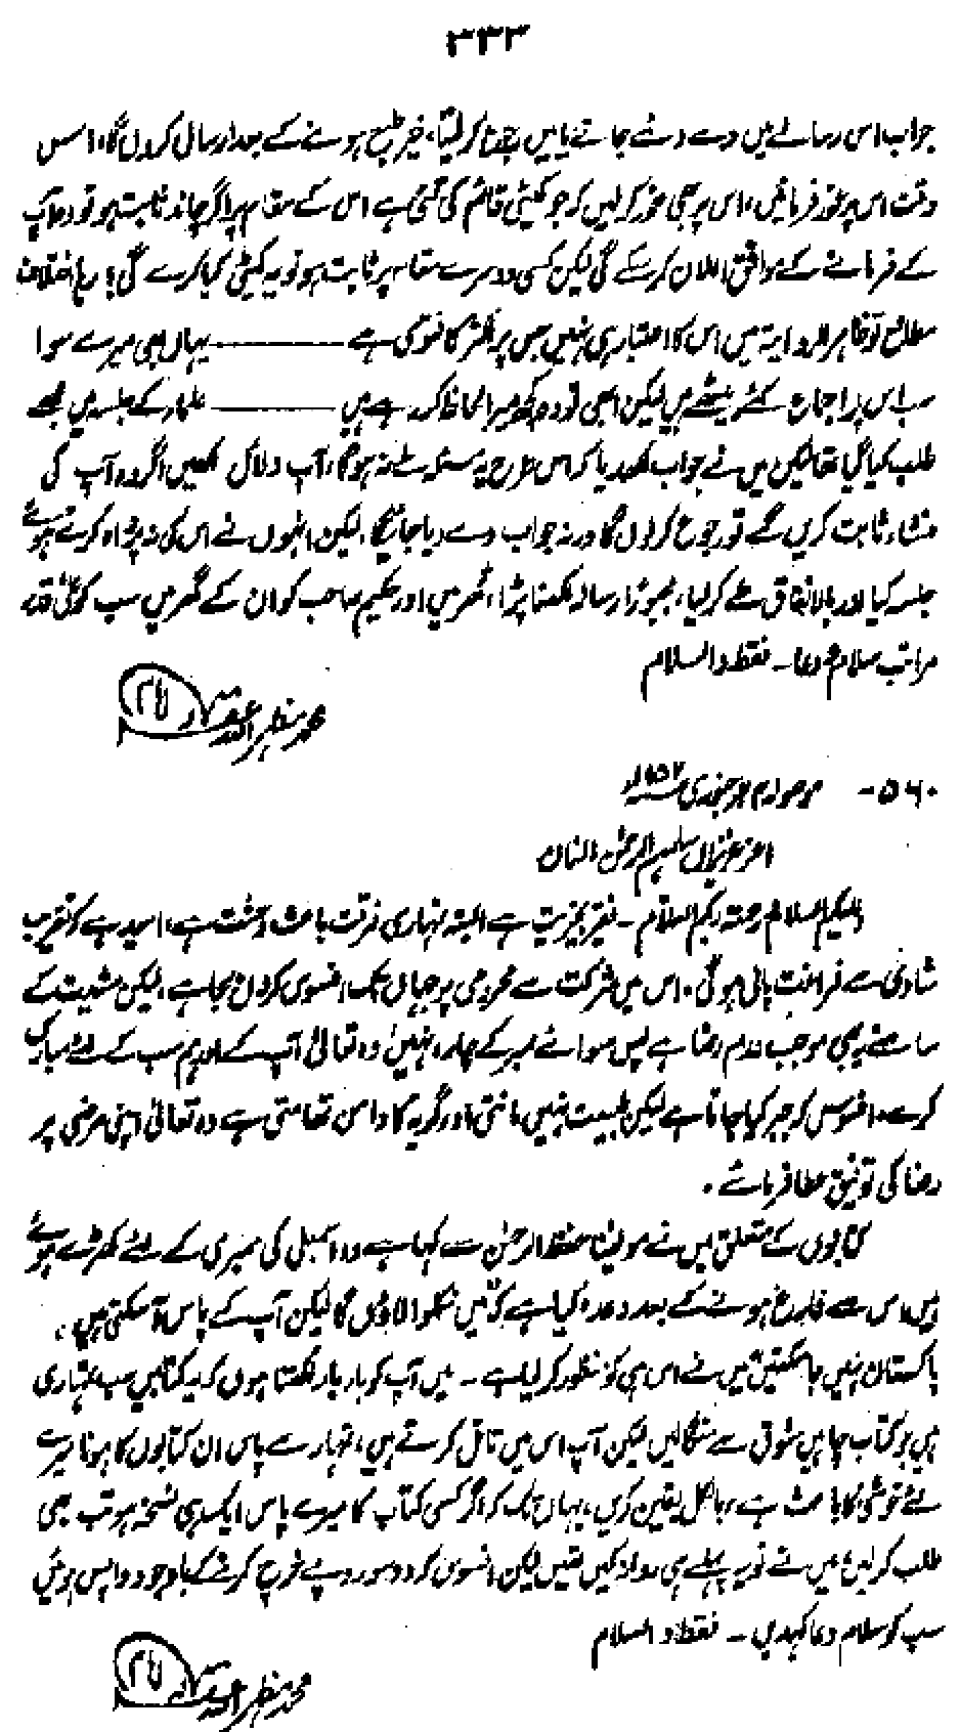 ۳۳۳
جواب اس رسالے میں دے دئے جاتے یا میں رجوع کر لیتا، خیر طبع ہونے کے بعد ارسال کروں گا، اسس
وقت اس پر غور فرمائیں، اس پر بھی غور کر لیں کہ جو کمیٹی قائم کی گئی ہے اس کے مقام پر اگر چاند ثابت ہو تو وہ آپ
کے فرمانے کے موافق اعلان کر سکے گی لیکن کسی دوسرے مقام پر ثابت ہو تو یہ کمیٹی کیا کرے گی؟ رہا اختلاف
مطالع تو ظاہر الروایۃ میں اس کا اعتبار ہی نہیں جس پر اکثر کا فتویٰ ہے ـــــــــ یہاں بھی میرے سوا
سب اس پر اجماع کئے بیٹھے ہیں لیکن ابھی تو وہ کچھ میرا لحاظ کر رہے ہیں ـــــــــ علماء کے جلسہ میں مجھے
طلب کیا گیا تھا لیکن میں نے جواب لکھ دیا کہ اس طرح یہ مسئلہ طے نہ ہوگا، آپ دلائل لکھیں اگر وہ آپ کی
منشاء ثابت کریں گے تو رجوع کر لوں گا ورنہ جواب دے دیا جائیگا، لیکن انہوں نے اس کی نہ پرواہ کرتے ہوئے
جلسہ کیا اور بالاتفاق طے کر لیا، مجبوراً رسالہ لکھنا پڑا، گھر میں اور حکیم صاحب کو ان کے گھر میں سب کو علیٰ قدر
مراتب سلام و دعا ۔ فقط والسلام
محمد مظہر اللہ غفرلہ
۵۶۰ - مورخہ جنوری ۱۹۵۲ء
اعز عزیزاں سلمہم الرحمٰن المنان
وعلیکم السلام ثم رحمۃ ربکم العلام ۔ فقیر بخیریت ہے البتہ تمہاری فرقت باعث وحشت ہے، امید ہے کہ تقریب
شادی سے فراغت پائی ہوگی، اس میں شرکت سے محرومی پر جہاں تک افسوس کروں بجا ہے، لیکن مشیت کے
سامنے یہ بھی موجب عدم رضا ہے پس سوائے صبر کے چارہ نہیں، وہ تعالیٰ آپ کے اور ہم سب کے لئے مبارک
کرے، افسوس کہ جبر کیا جاتا ہے لیکن طبیعت نہیں مانتی اور گریہ کا دامن تھامتی ہے وہ تعالیٰ اپنی مرضی پر
رضا کی توفیق عطا فرمائے ۔
کتابوں کے متعلق میں نے مولینا حفظ الرحمٰن سے کہا ہے وہ اسمبلی کی ممبری کے لئے کھڑے ہوئے
ہیں اس سے فارغ ہونے کے بعد وعدہ کیا ہے کہ میں نکلوا لاؤں گا لیکن آپ کے پاس آ سکتی ہیں،
پاکستان نہیں جا سکتیں میں نے اس ہی کو منظور کر لیا ہے ۔ میں آپ کو بار بار لکھتا ہوں کہ یہ کتابیں سب تمہاری
ہیں جو کتاب چاہیں شوق سے منگالیں لیکن آپ اس میں تامل کرتے ہیں، تمہارے پاس ان کتابوں کا ہونا میرے
لئے خوشی کا باعث ہے، بالکل یقین کریں، یہاں تک کہ اگر کسی کتاب کا میرے پاس ایک ہی نسخہ ہو تب بھی
طلب کر لیں، میں نے تو یہ پہلے ہی روانہ کیں تھیں لیکن افسوس کہ دو سو روپے خرچ کرنے کے باوجود واپس ہوئیں
سب کو سلام و دعا کہدیں ۔ فقط والسلام
محمد مظہر اللہ